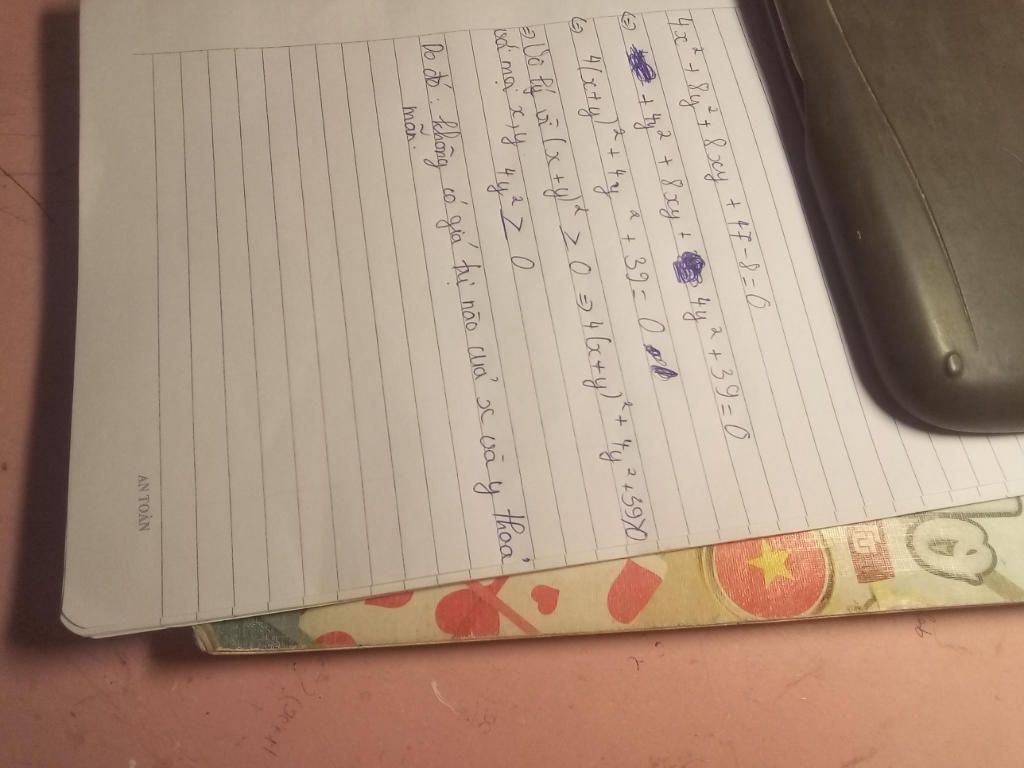 4x² + 8y² + 8xy + 47 - 8 = 0
(=) + 4y² + 8xy + 4y² + 39 = 0
(=) 4(x+y)² + 4y² + 39 = 0
=) Vô lý vì (x+y)² ≥ 0 => 4(x+y)² + 4y² + 39 > 0
với mọi x, y 4y² ≥ 0
Do đó: không có giá trị nào cuả x và y thoả
mãn.
AN TOÀN